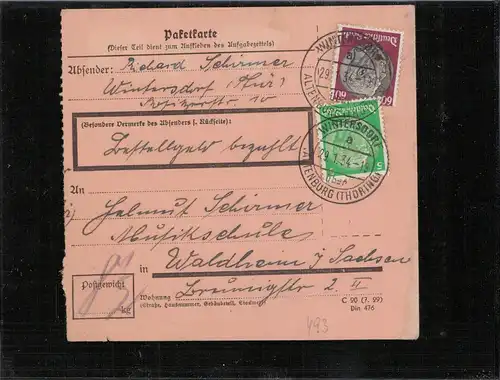 Paketkarte
(Dieser Teil dient zum Aufkleben des Aufgabezettels)
Absender: Richard Schirmer
Wintersdorf (Thür)
10
(Besondere Vermerke des Absenders s. Rückseite):
Bestellgeld bezahlt
An
Helmut Schirmer
Musikschule
in Waldheim i/ Sachsen
Postgewicht
kg
Wohnung
2 II
(Straße, Hausnummer, Gebäudeteil, Stockwerk)
C 90 (7. 29)
Din 476
493
Deutsches Reich
60
60
WINTERSDORF
a
29.1.34
ALTENBURG (THÜRING)
5